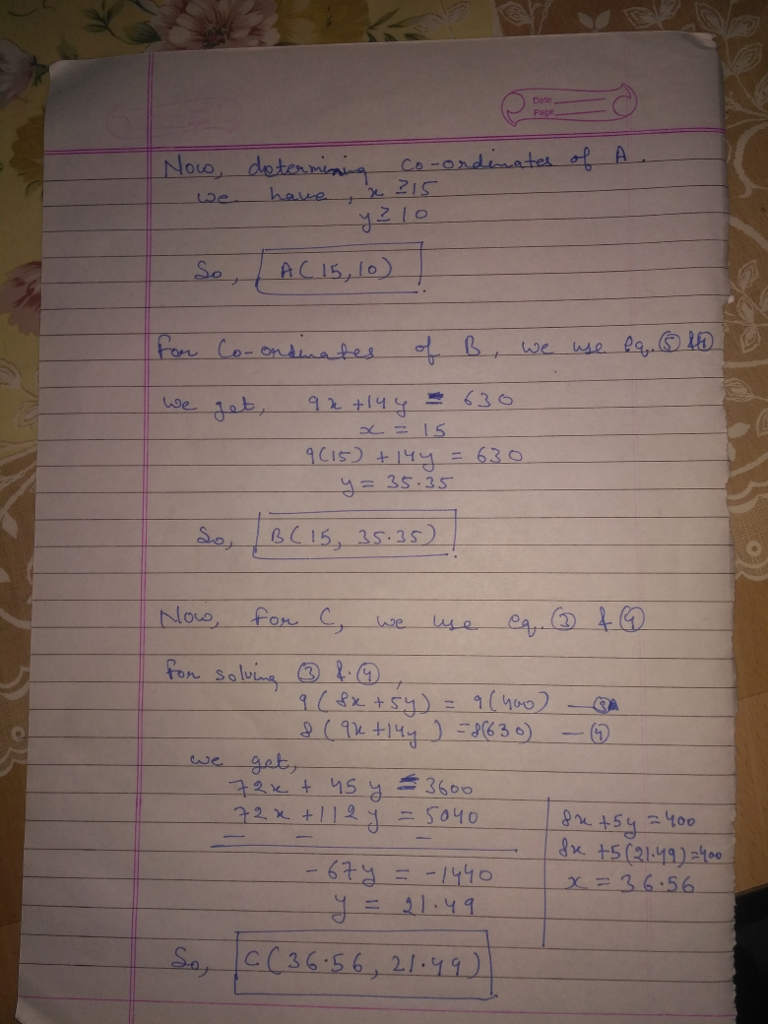 Date
Page
Now, determining co-ordinates of A.
we have, x ≥ 15
y ≥ 10
So, A(15, 10).
For Co-ordinates of B, we use eq. ⑤ & ④
we get, 9x + 14y = 630
x = 15
9(15) + 14y = 630
y = 35.35
So, B(15, 35.35).
Now, for C, we use eq. ③ & ④
for solving ③ & ④,
9(8x + 5y) = 9(400) — ③
8(9x + 14y) = 8(630) — ④
we get,
72x + 45y = 3600
72x + 112y = 5040
— — —
-67y = -1440
y = 21.49
8x + 5y = 400
8x + 5(21.49) = 400
x = 36.56
So, C(36.56, 21.49)